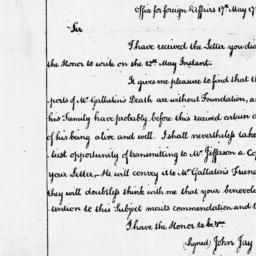 Office for foreign Affairs 17th May 17
Sir
I have received the Letter you did
the Honor to write on the 12th May Instant.
It gives me pleasure to find that th
ports of Mr Gallatin's Death are without Foundation, a
his Family have probably before this received certain a
of his being alive and well. I shall nevertheless take
last opportunity of transmitting to Mr Jefferson a Cop
your Letter. He will convey it to Mr Gallatin's Friend
they will doubtless think with me that your benevole
tention to this Subject merits commendation and t
I have the Honor to be &c.
(signed) John Jay